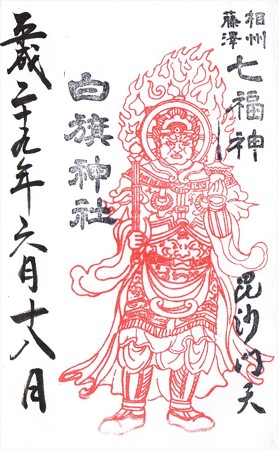 相州
藤澤
七福神
毘沙门天
白旗神社
平成二十九年六月十八月